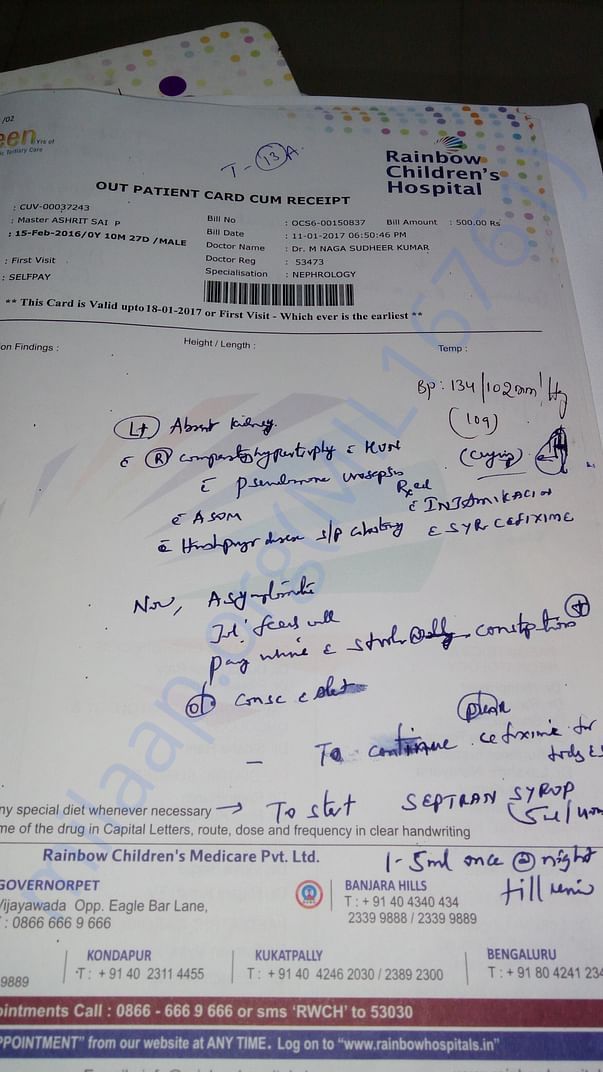 /02
een Yrs of
ic Tertiary Care
T - 13 A.
Rainbow
Children's
Hospital
OUT PATIENT CARD CUM RECEIPT
: CUV-00037243
: Master ASHRIT SAI P
: 15-Feb-2016/0Y 10M 27D /MALE
: First Visit
: SELFPAY
Bill No : OCS6-00150837 Bill Amount : 500.00 Rs
Bill Date : 11-01-2017 06:50:46 PM
Doctor Name : Dr. M NAGA SUDHEER KUMAR
Doctor Reg : 53473
Specialisation : NEPHROLOGY
** This Card is Valid upto18-01-2017 or First Visit - Which ever is the earliest **
on Findings : Height / Length : Temp :
BP: 134/102mm Hg
(109)
(crying)
Lt Absent kidney.
c R hypertrophy c HUN
c urosepsis
Rxed
c ASOM c INJ AMIKACIN
c s/p c SYR CEFIXIME
Now, Asymptomatic
feeds well
c stools constipation +
o/e
- To continue cefixime for
ny special diet whenever necessary → To start SEPTRAN SYROP
me of the drug in Capital Letters, route, dose and frequency in clear handwriting
(5ml/
1-5ml once @ night
till
Rainbow Children's Medicare Pvt. Ltd.
GOVERNORPET
Vijayawada Opp. Eagle Bar Lane,
: 0866 666 9 666
BANJARA HILLS
T : + 91 40 4340 434
2339 9888 / 2339 9889
9889
KONDAPUR
T : + 91 40 2311 4455
KUKATPALLY
T : + 91 40 4246 2030 / 2389 2300
BENGALURU
T : + 91 80 4241 234
ointments Call : 0866 - 666 9 666 or sms 'RWCH' to 53030
PPOINTMENT" from our website at ANY TIME. Log on to "www.rainbowhospitals.in"
milaap.org(MIL167671)